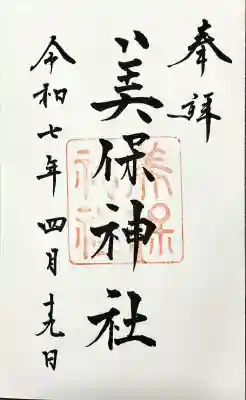 奉拝
美保神社
美保神社
令和七年四月十九日